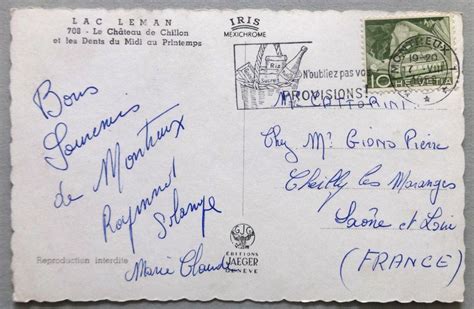 LAC LEMAN
708 - Le Château de Chillon
et les Dents du Midi au Printemps
IRIS
MEXICHROME
Riz
Sucre
N'oubliez pas vos
PROVISIONS!
MONTREUX 1
19-20
17. VIII
10
Bons
Souvenirs
de Montreux
Raymond
Solange
Marie Claude
Mr CATTORINI
Chez Mr Pierre
Cheilly les Maranges
Saône et Loire
(FRANCE)
Reproduction interdite
EDITIONS
JAEGER
GENÈVE